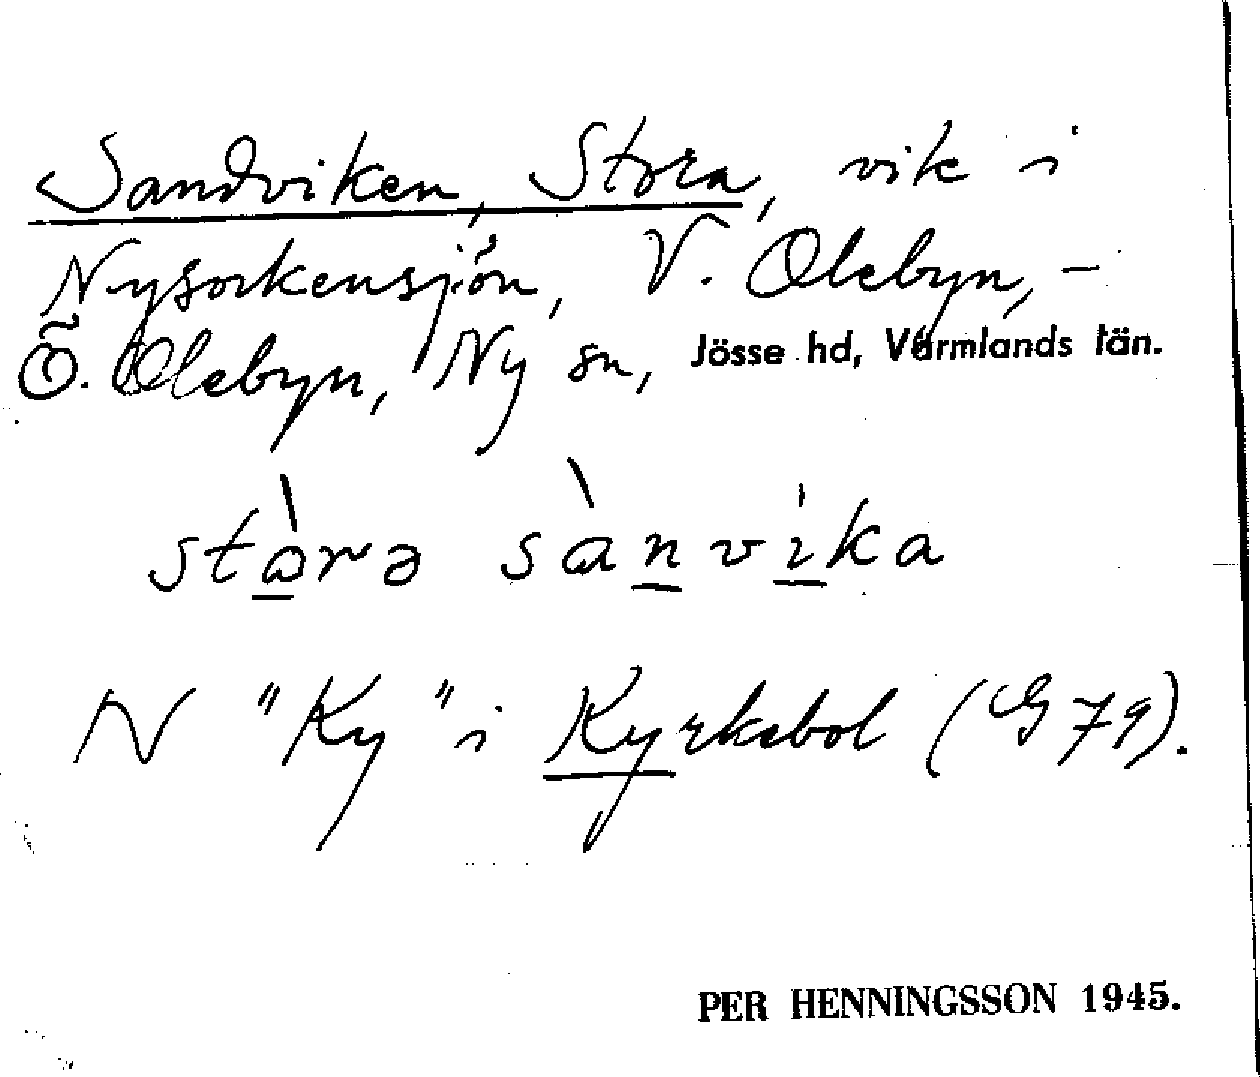 Sandviken, Stora, vik i
Nysockensjön, V. Olebyn, –
Ö. Olebyn, Ny sn, Jösse hd, Värmlands län.
stòrə sànvíka
N "Ky" i Kyrkebol (G 79).
PER HENNINGSSON 1945.